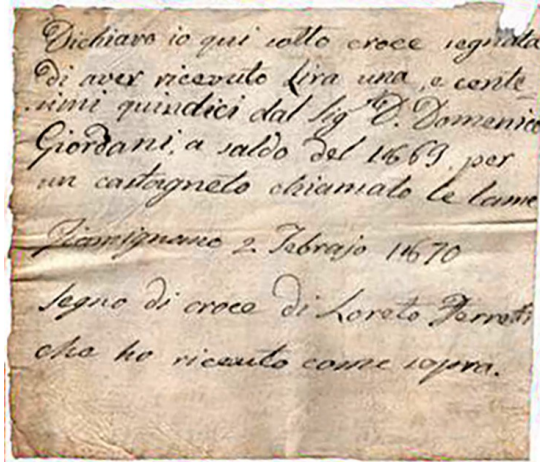 Dichiaro io qui sotto croce segnata
di aver ricevuto Lira una, e cente
simi quindici dal Sig.r D. Domenico
Giordani, a saldo del 1869. per
un castagneto chiamato le lame
2 Febrajo 1870
Segno di croce di Loreto Ferretti
che ho ricevuto come sopra.